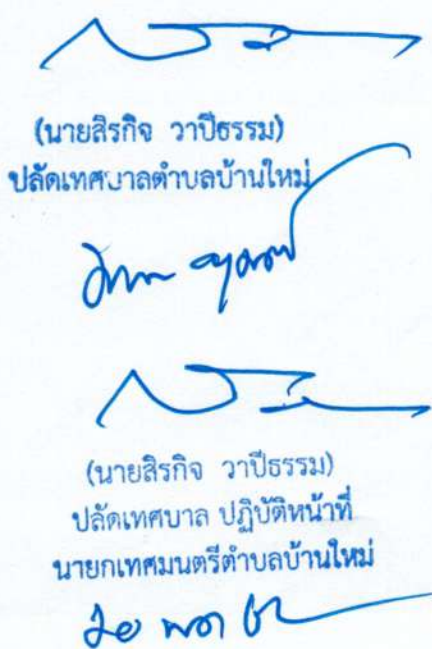 (นายสิรกิจ วาปีธรรม)
ปลัดเทศบาลตำบลบ้านใหม่
(นายสิรกิจ วาปีธรรม)
ปลัดเทศบาล ปฏิบัติหน้าที่
นายกเทศมนตรีตำบลบ้านใหม่